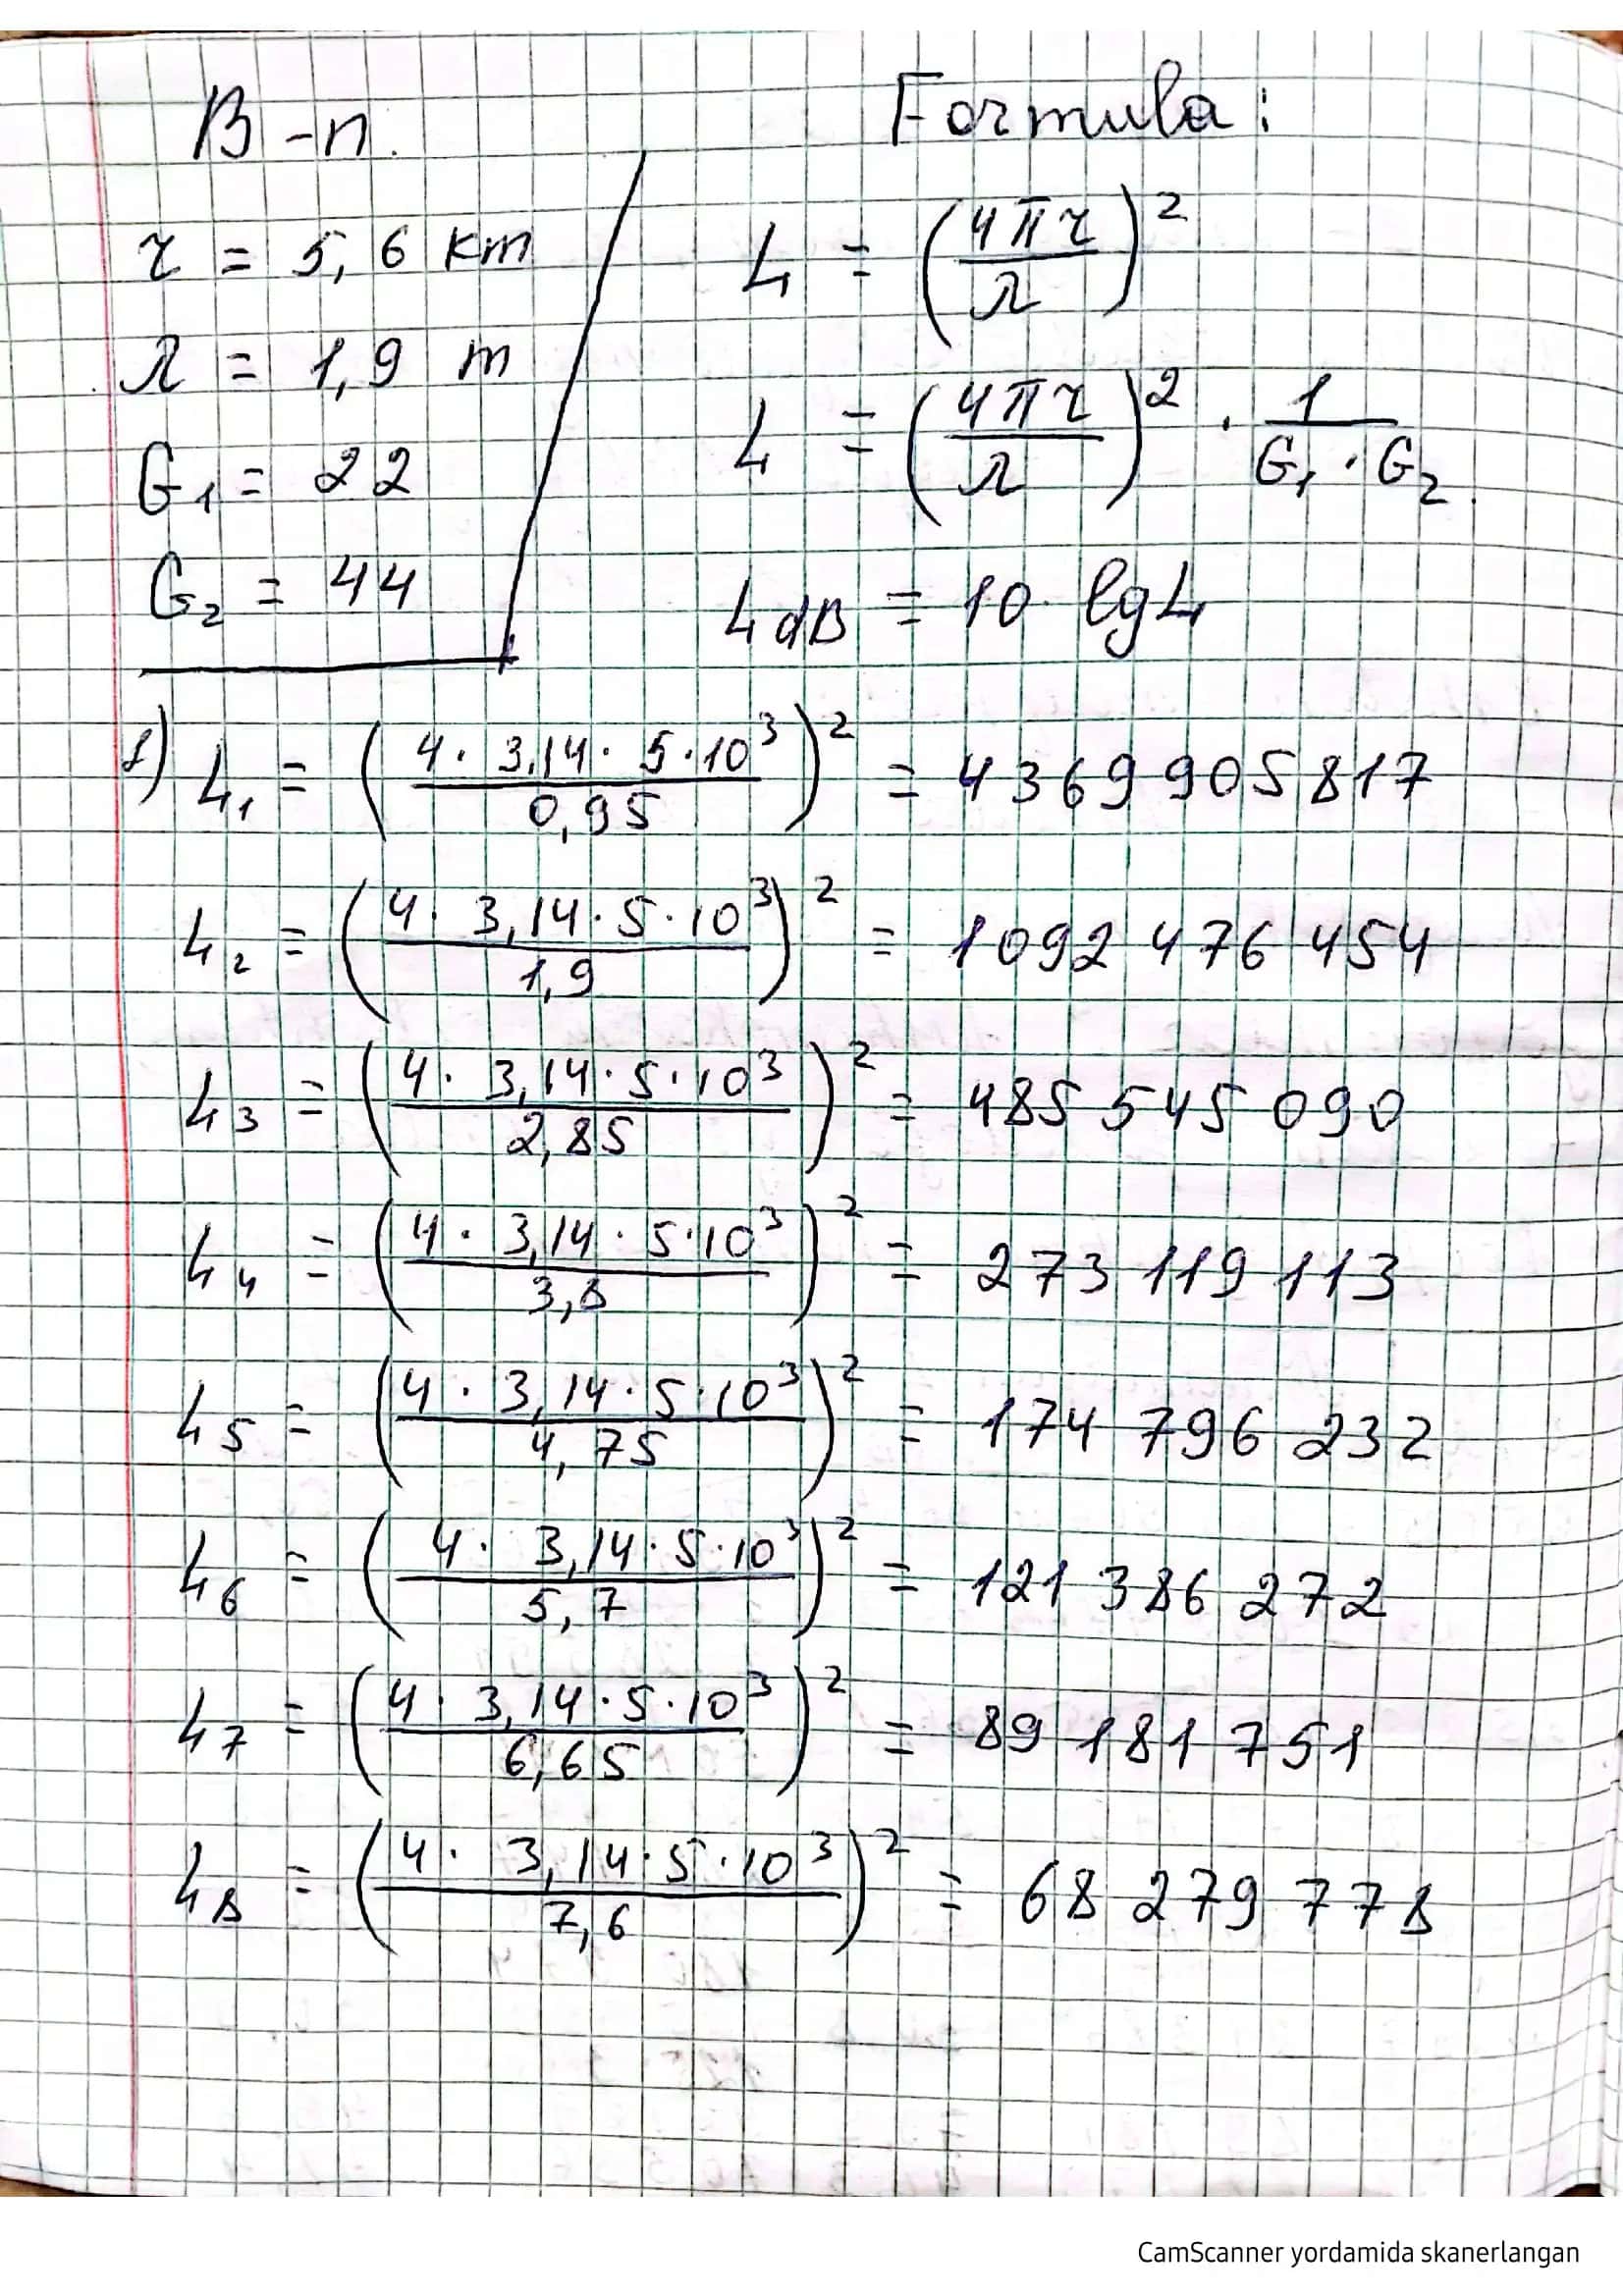 B-n.
r = 5,6 km
λ = 1,9 m
G₁ = 22
G₂ = 44
Formula:
L = (4πr/λ)²
L = (4πr/λ)² · 1/(G₁·G₂).
L dB = 10 · lg L
1) L₁ = (4 · 3,14 · 5·10³/0,95)² = 4369905817
L₂ = (4 · 3,14 · 5 · 10³/1,9)² = 1092 476 454
L₃ = (4 · 3,14 · 5 · 10³/2,85)² = 485 545 090
L₄ = (4 · 3,14 · 5·10³/3,8)² = 273 119 113
L₅ = (4 · 3,14 · 5·10³/4,75)² = 174 796 232
L₆ = (4 · 3,14 · 5 · 10³/5,7)² = 121 386 272
L₇ = (4 · 3,14 · 5 · 10³/6,65)² = 89 181 751
L₈ = (4 · 3,14 · 5 · 10³/7,6)² = 68 279 778
CamScanner yordamida skanerlangan